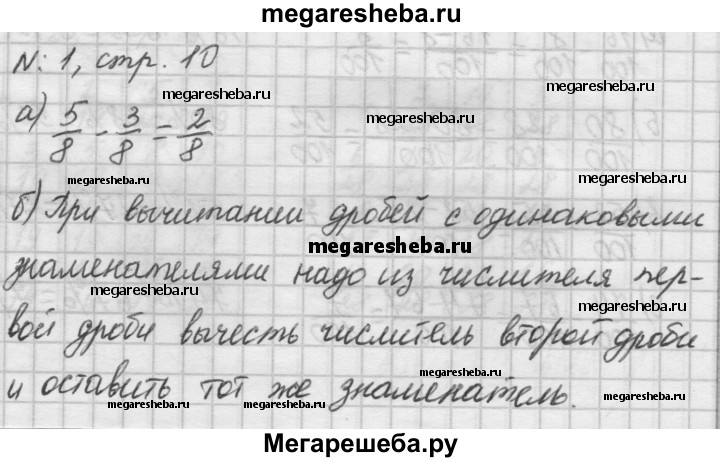 megaresheba.ru
№: 1, стр. 10
megaresheba.ru
а) 5/8 - 3/8 = 2/8
megaresheba.ru
megaresheba.ru
megaresheba.ru
б) При вычитании дробей с одинаковыми
megaresheba.ru
знаменателями надо из числителя пер-
megaresheba.ru
megaresheba.ru
вой дроби вычесть числитель второй дроби
megaresheba.ru
и оставить тот же знаменатель.
megaresheba.ru
megaresheba.ru
Мегарешеба.ру